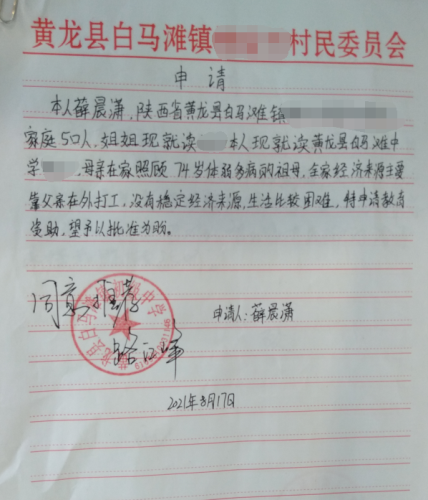 黄龙县白马滩镇 村民委员会
申请
本人薛晨潇,陕西省黄龙县白马滩镇
家庭5口人,姐姐现就读 本人现就读黄龙县白马滩中
学 ,母亲在家照顾74岁体弱多病的祖母,全家经济来源主要
靠父亲在外打工,没有稳定经济来源,生活比较困难,特申请教育
资助,望予以批准为盼。
同意推荐
申请人:薛晨潇
2021年3月17日